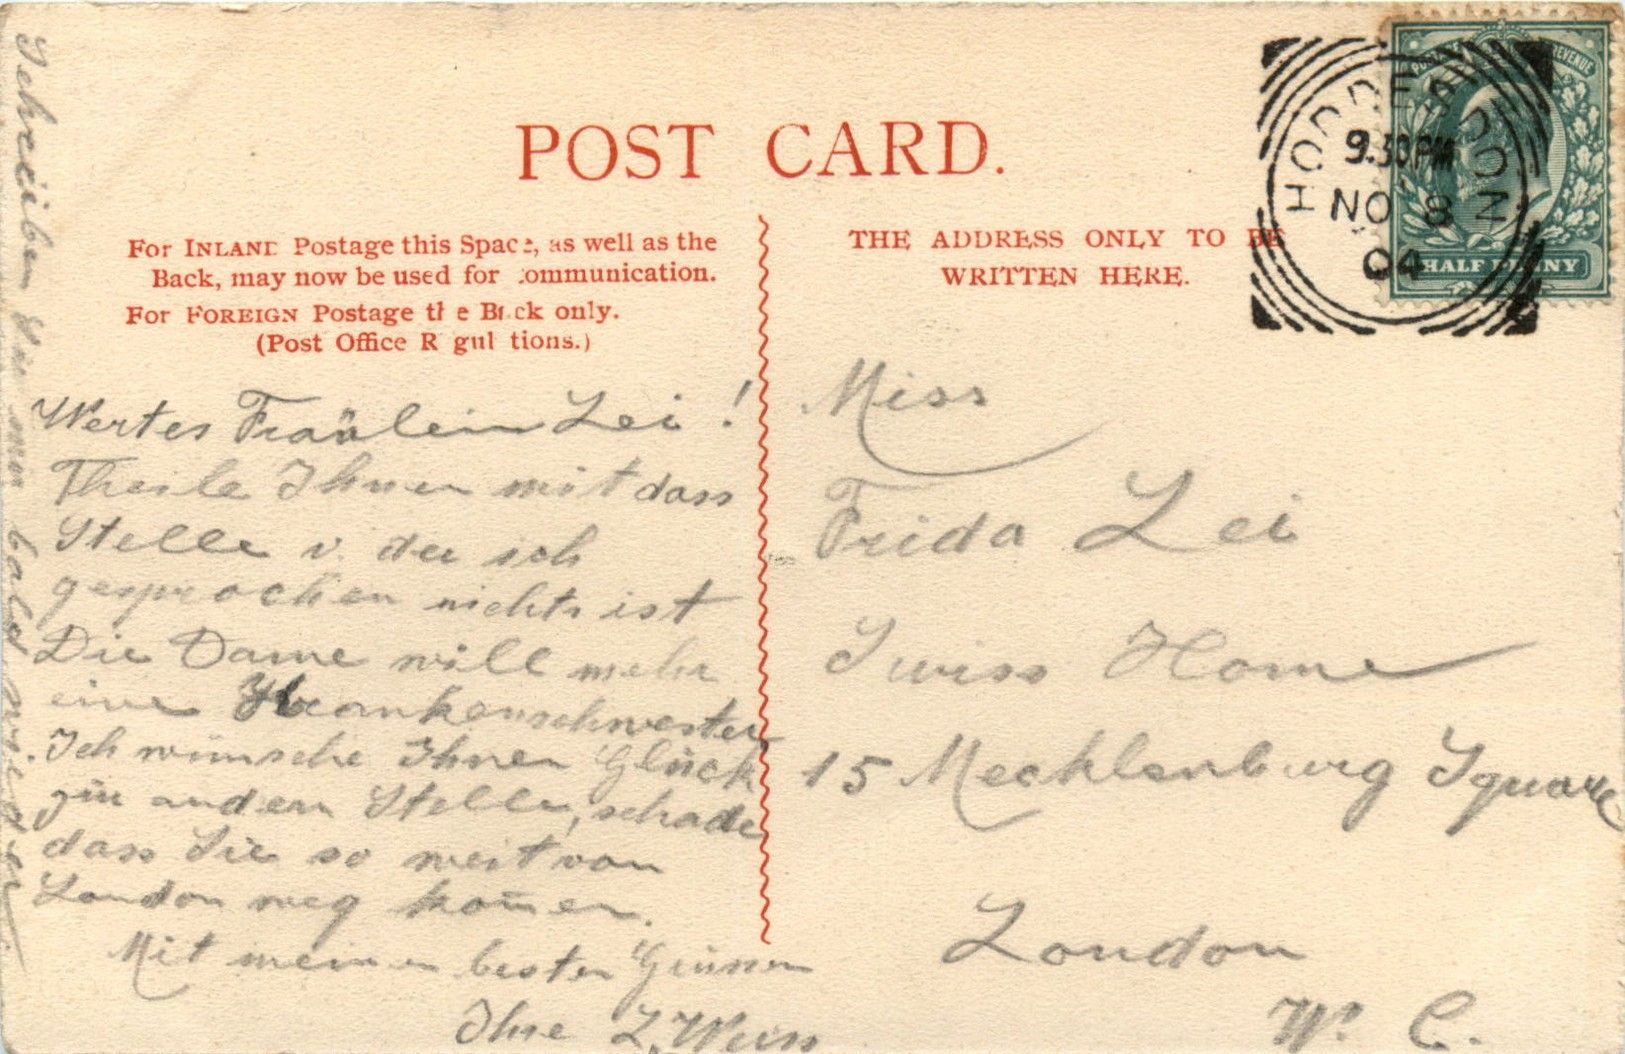 POST CARD.
For INLAND Postage this Space, as well as the
Back, may now be used for communication.
For FOREIGN Postage the Back only.
(Post Office Regulations.)
THE ADDRESS ONLY TO BE
WRITTEN HERE.
HODDESDON
9.30PM
NO 8
04
REVENUE
HALF PENNY
Wertes Fraülein Lei!
Theile Ihnen mit dass
Stelle v. der ich
gesprochen nichts ist
Die Dame will mehr
eine Krankenschwester
Ich wünsche Ihnen Glück
zur andern Stelle, schade
dass Sie so weit von
London weg kom̄en.
Mit meinen besten Grüssen
Ihre L. Weiss
Schreiben Sie mir bald wieder.
Miss
Frida Lei
Swiss Home
15 Mecklenburg Square
London
W. C.